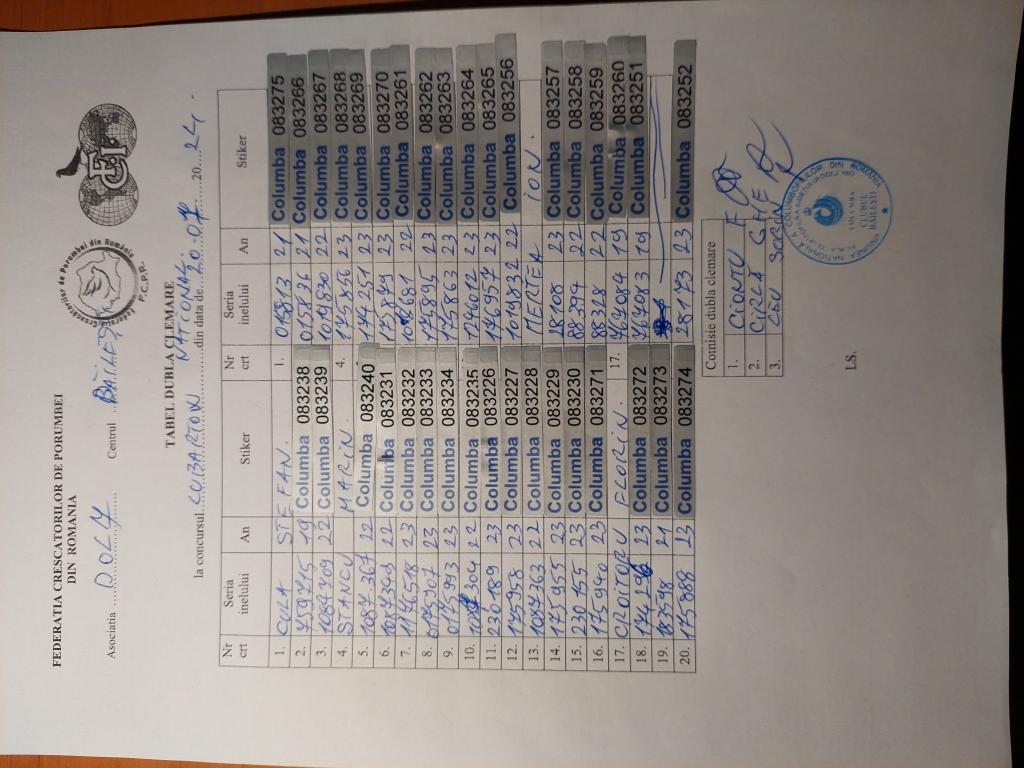 FEDERATIA CRESCATORILOR DE PORUMBEI
DIN ROMANIA
Asociatia DOLY Centrul BĂILEȘTI
Federatia Crescatorilor de Porumbei din România
F.C.P.R.
FCI
TABEL DUBLA CLEMARE
la concursul LUBARTOW NATIONAL din data de 20-07 2024
Nr crt Seria inelului An Stiker Nr crt Seria inelului An Stiker
1. CULA STEFAN. 1. 015813 21 Columba 083275
2. 759715 19 Columba 083238 015836 21 Columba 083266
3. 1084709 22 Columba 083239 1019830 22 Columba 083267
4. STANCU MARIN. 4. 175856 23 Columba 083268
5. 1087.367 22 Columba 083240 174251 23 Columba 083269
6. 1087348 22 Columba 083231 175849 23 Columba 083270
7. 1174518 23 Columba 083232 22 Columba 083261
8. 0175907 23 Columba 083233 175895 23 Columba 083262
9. 0175993 23 Columba 083234 175863 23 Columba 083263
10. 22 Columba 083235 1246012 23 Columba 083264
11. 230189 23 Columba 083226 176957 23 Columba 083265
12. 175998 23 Columba 083227 1019832 22 Columba 083256
13. 1087363 22 Columba 083228 MERTEA ION.
14. 175955 23 Columba 083229 28108 23 Columba 083257
15. 230155 23 Columba 083230 88394 22 Columba 083258
16. 175940 23 Columba 083271 88328 22 Columba 083259
17. CROITORU FLORIN. 17. 767084 19 Columba 083260
18. 174296 23 Columba 083272 767083 19 Columba 083251
19. 183598 21 Columba 083273 19.
20. 17588 23 Columba 083274 28173 23 Columba 083252
Comisie dubla clemare
1. CIONTU F
2. CÎRLĂ GHE
3. LEU SORIN
LS.
UNIUNEA NATIONALA A COLUMBOFILILOR DIN ROMANIA
COLUMBA
CLUBUL
BĂILEȘTI